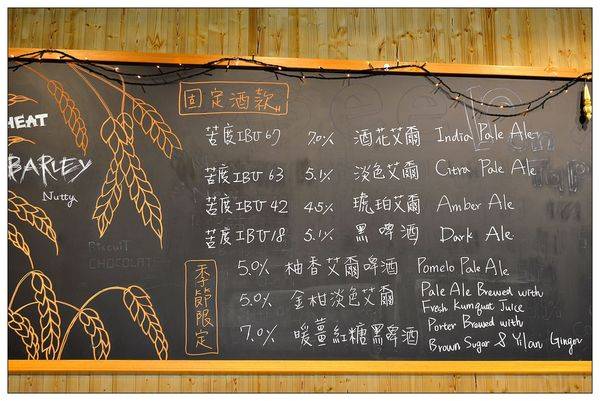 固定酒款
HEAT
BARLEY
Nutty
BISCUIT
CHOCOLAT
苦度IBU 67 7.0% 酒花艾爾 India Pale Ale
苦度IBU 63 5.1% 淡色艾爾 Citra Pale Ale
苦度IBU 42 4.5% 琥珀艾爾 Amber Ale
苦度IBU 18 5.1% 黑啤酒 Dark Ale
季節限定
5.0% 柚香艾爾啤酒 Pomelo Pale Ale
5.0% 金柑淡色艾爾 Pale Ale Brewed with
Fresh Kumquat Juice
7.0% 暖薑紅糖黑啤酒 Porter Brewed with
Brown Sugar & Yilan Ginger